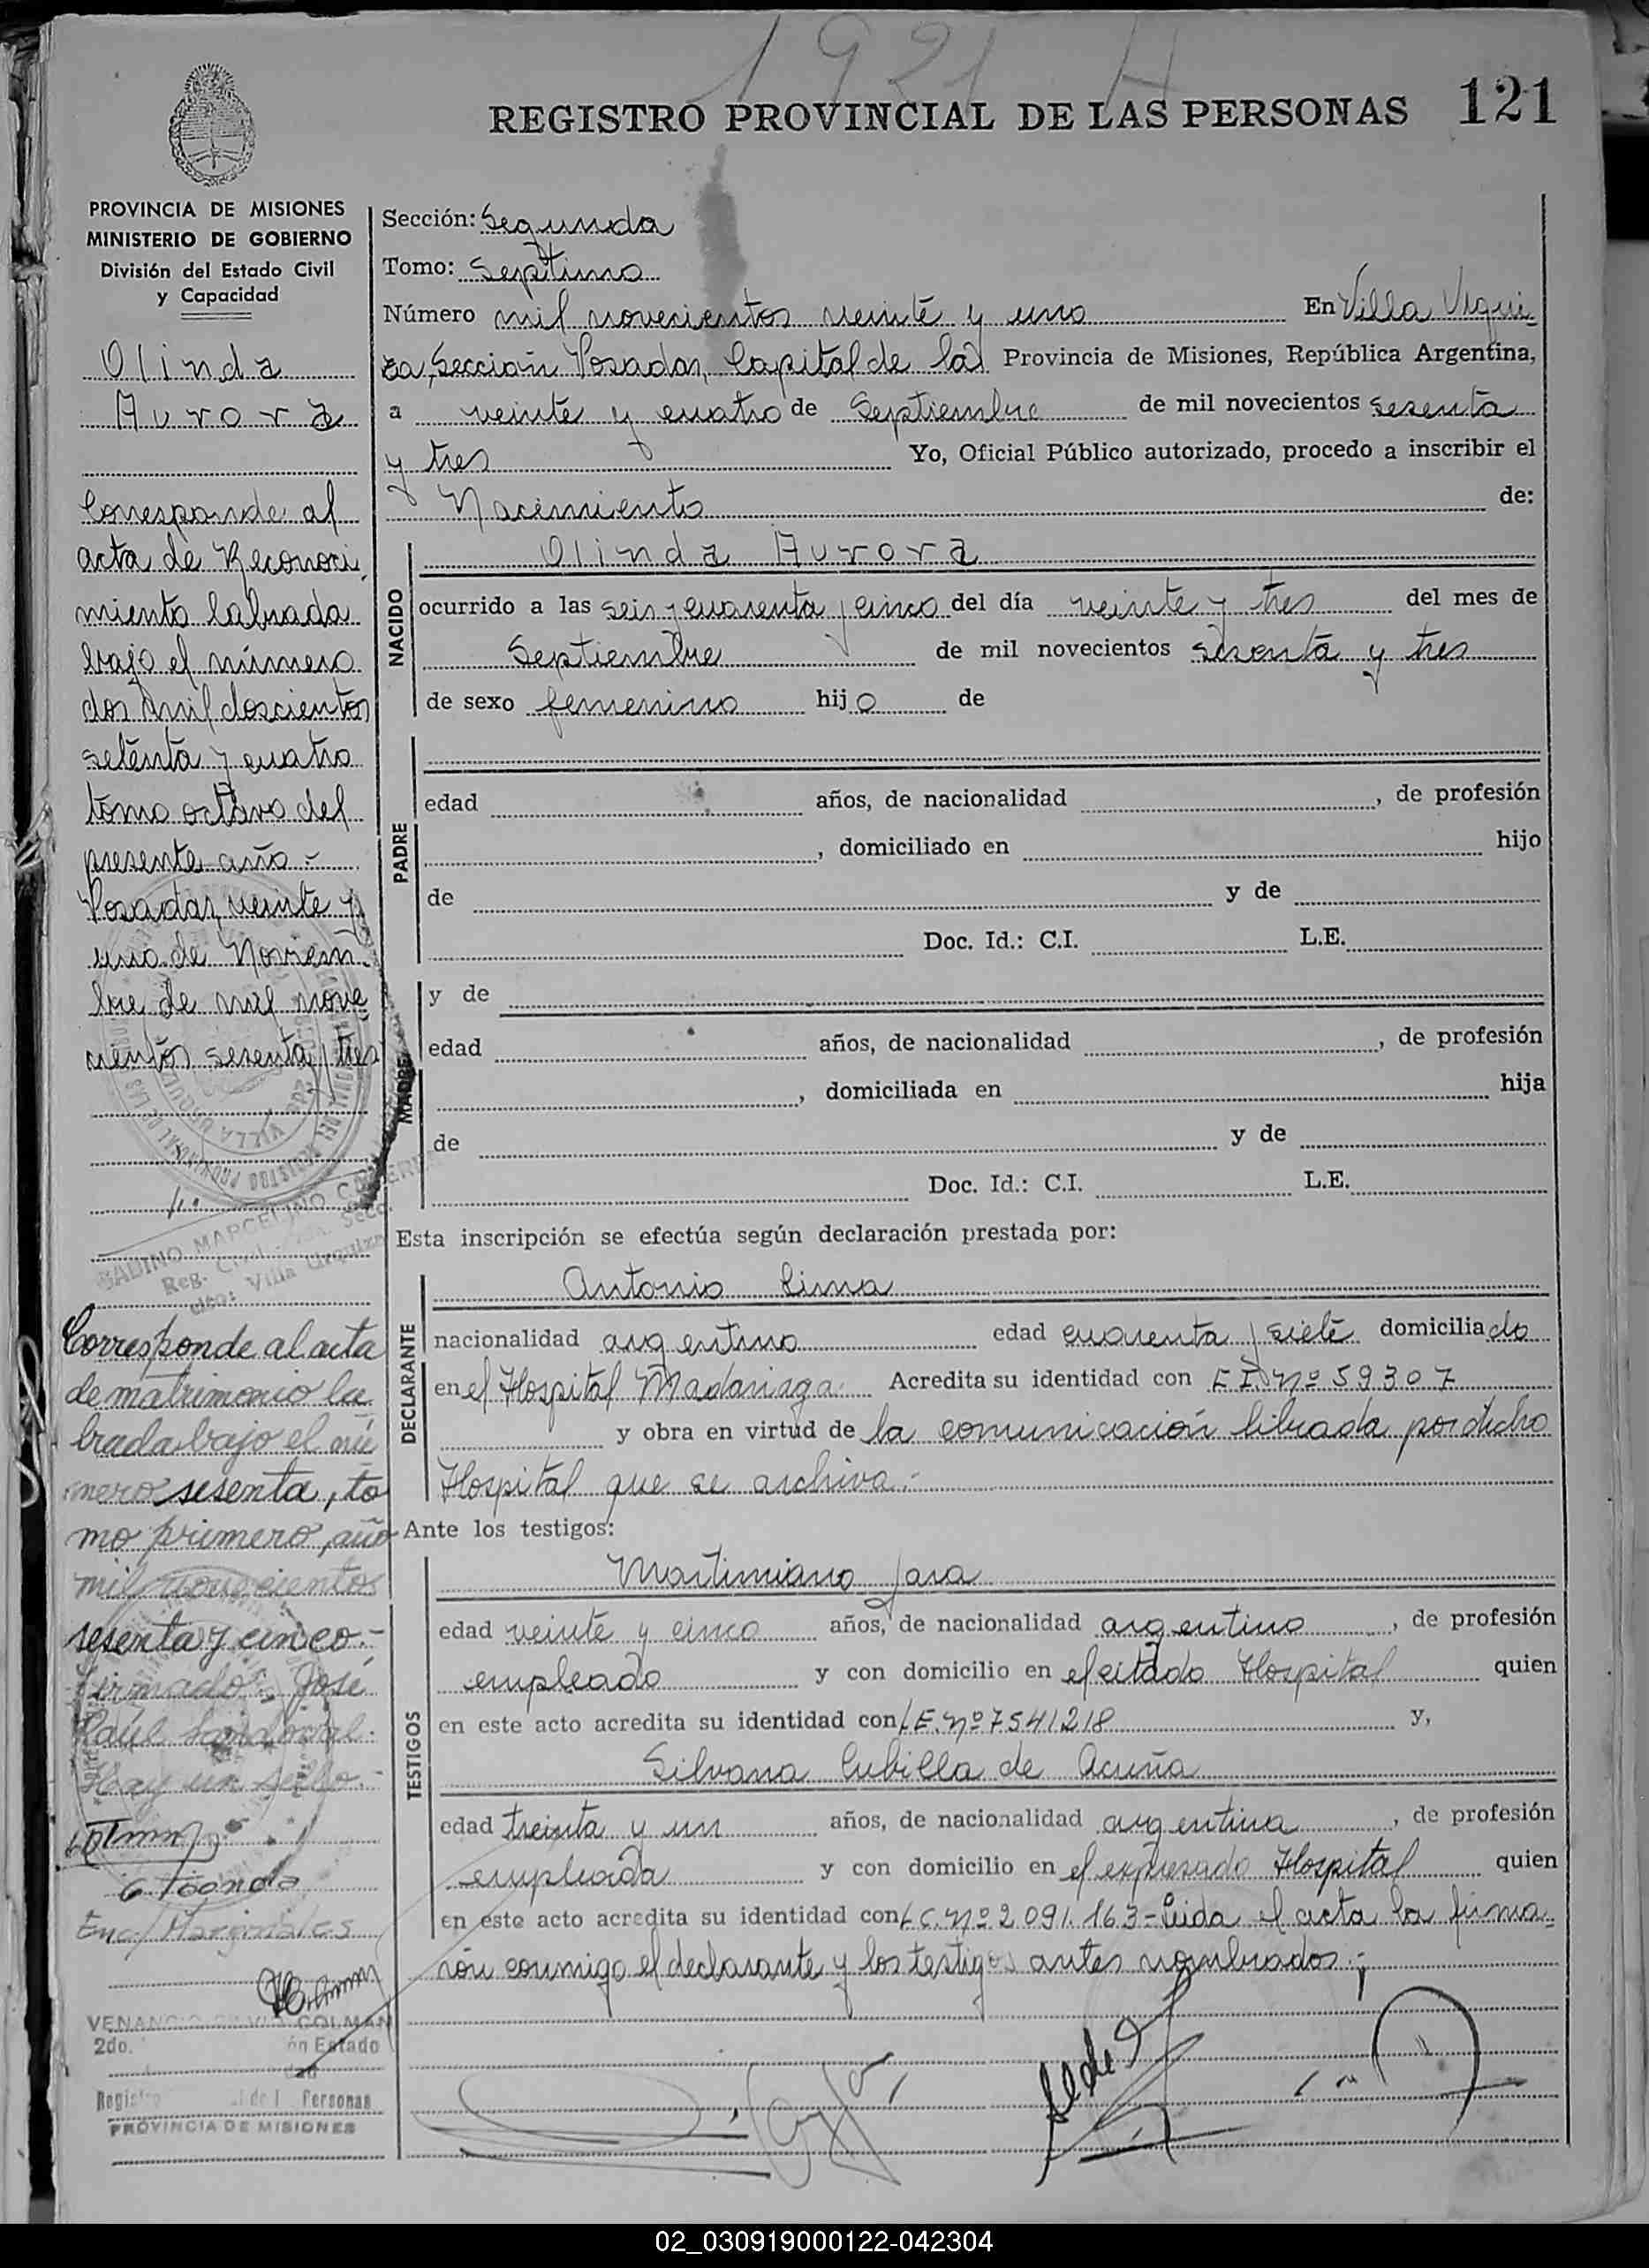 1921 H
REGISTRO PROVINCIAL DE LAS PERSONAS 121
PROVINCIA DE MISIONES
MINISTERIO DE GOBIERNO
División del Estado Civil
y Capacidad
Olinda
Aurora
Corresponde al
acta de Reconoci
miento labrada
bajo el número
dos mil doscientos
setenta y cuatro
tomo octavo del
presente año.-
Posadas, veinte y
uno de Noviem-
bre de mil nove-
cientos sesenta y tres
MARCELINO
Reg. Civil
Villa Urquiza
Corresponde al acta
de matrimonio la
brada bajo el nú
mero sesenta, to
mo primero, año
mil novecientos
sesenta y cinco.-
Firmado: José
Raúl Sandoval.
Hay un sello.-
Enc/ Marginales
VENANCIO COLMAN
2do. ón Estado
Registro Personas
PROVINCIA DE MISIONES
Sección: Segunda
Tomo: Septimo
Número mil novecientos veinte y uno En Villa Urqui-
za, Sección Posadas, Capital de la Provincia de Misiones, República Argentina,
a veinte y cuatro de Septiembre de mil novecientos sesenta
y tres Yo, Oficial Público autorizado, procedo a inscribir el
Nacimiento de:
NACIDO
Olinda Aurora
ocurrido a las seis y cuarenta y cinco del día veinte y tres del mes de
Septiembre de mil novecientos sesenta y tres
de sexo femenino hijo de
PADRE
edad años, de nacionalidad , de profesión
, domiciliado en hijo
de y de
Doc. Id.: C.I. L.E.
MADRE
y de
edad años, de nacionalidad , de profesión
, domiciliada en hija
de y de
Doc. Id.: C.I. L.E.
Esta inscripción se efectúa según declaración prestada por:
DECLARANTE
Antonio Lima
nacionalidad argentino edad cuarenta y siete domiciliado
en el Hospital Madariaga Acredita su identidad con C I. Nº 59307
y obra en virtud de la comunicación librada por dicho
Hospital que se archiva.-
Ante los testigos:
TESTIGOS
Martimiano Jara
edad veinte y cinco años, de nacionalidad argentino , de profesión
empleado y con domicilio en el citado Hospital quien
en este acto acredita su identidad con L E. Nº 7541218 y,
Silvana Cubilla de Acuña
edad treinta y un años, de nacionalidad argentina , de profesión
empleada y con domicilio en el expresado Hospital quien
en este acto acredita su identidad con L C. Nº 2 091.163- Leida el acta la firma-
ron conmigo el declarante y los testigos antes nombrados.-
02_030919000122-042304